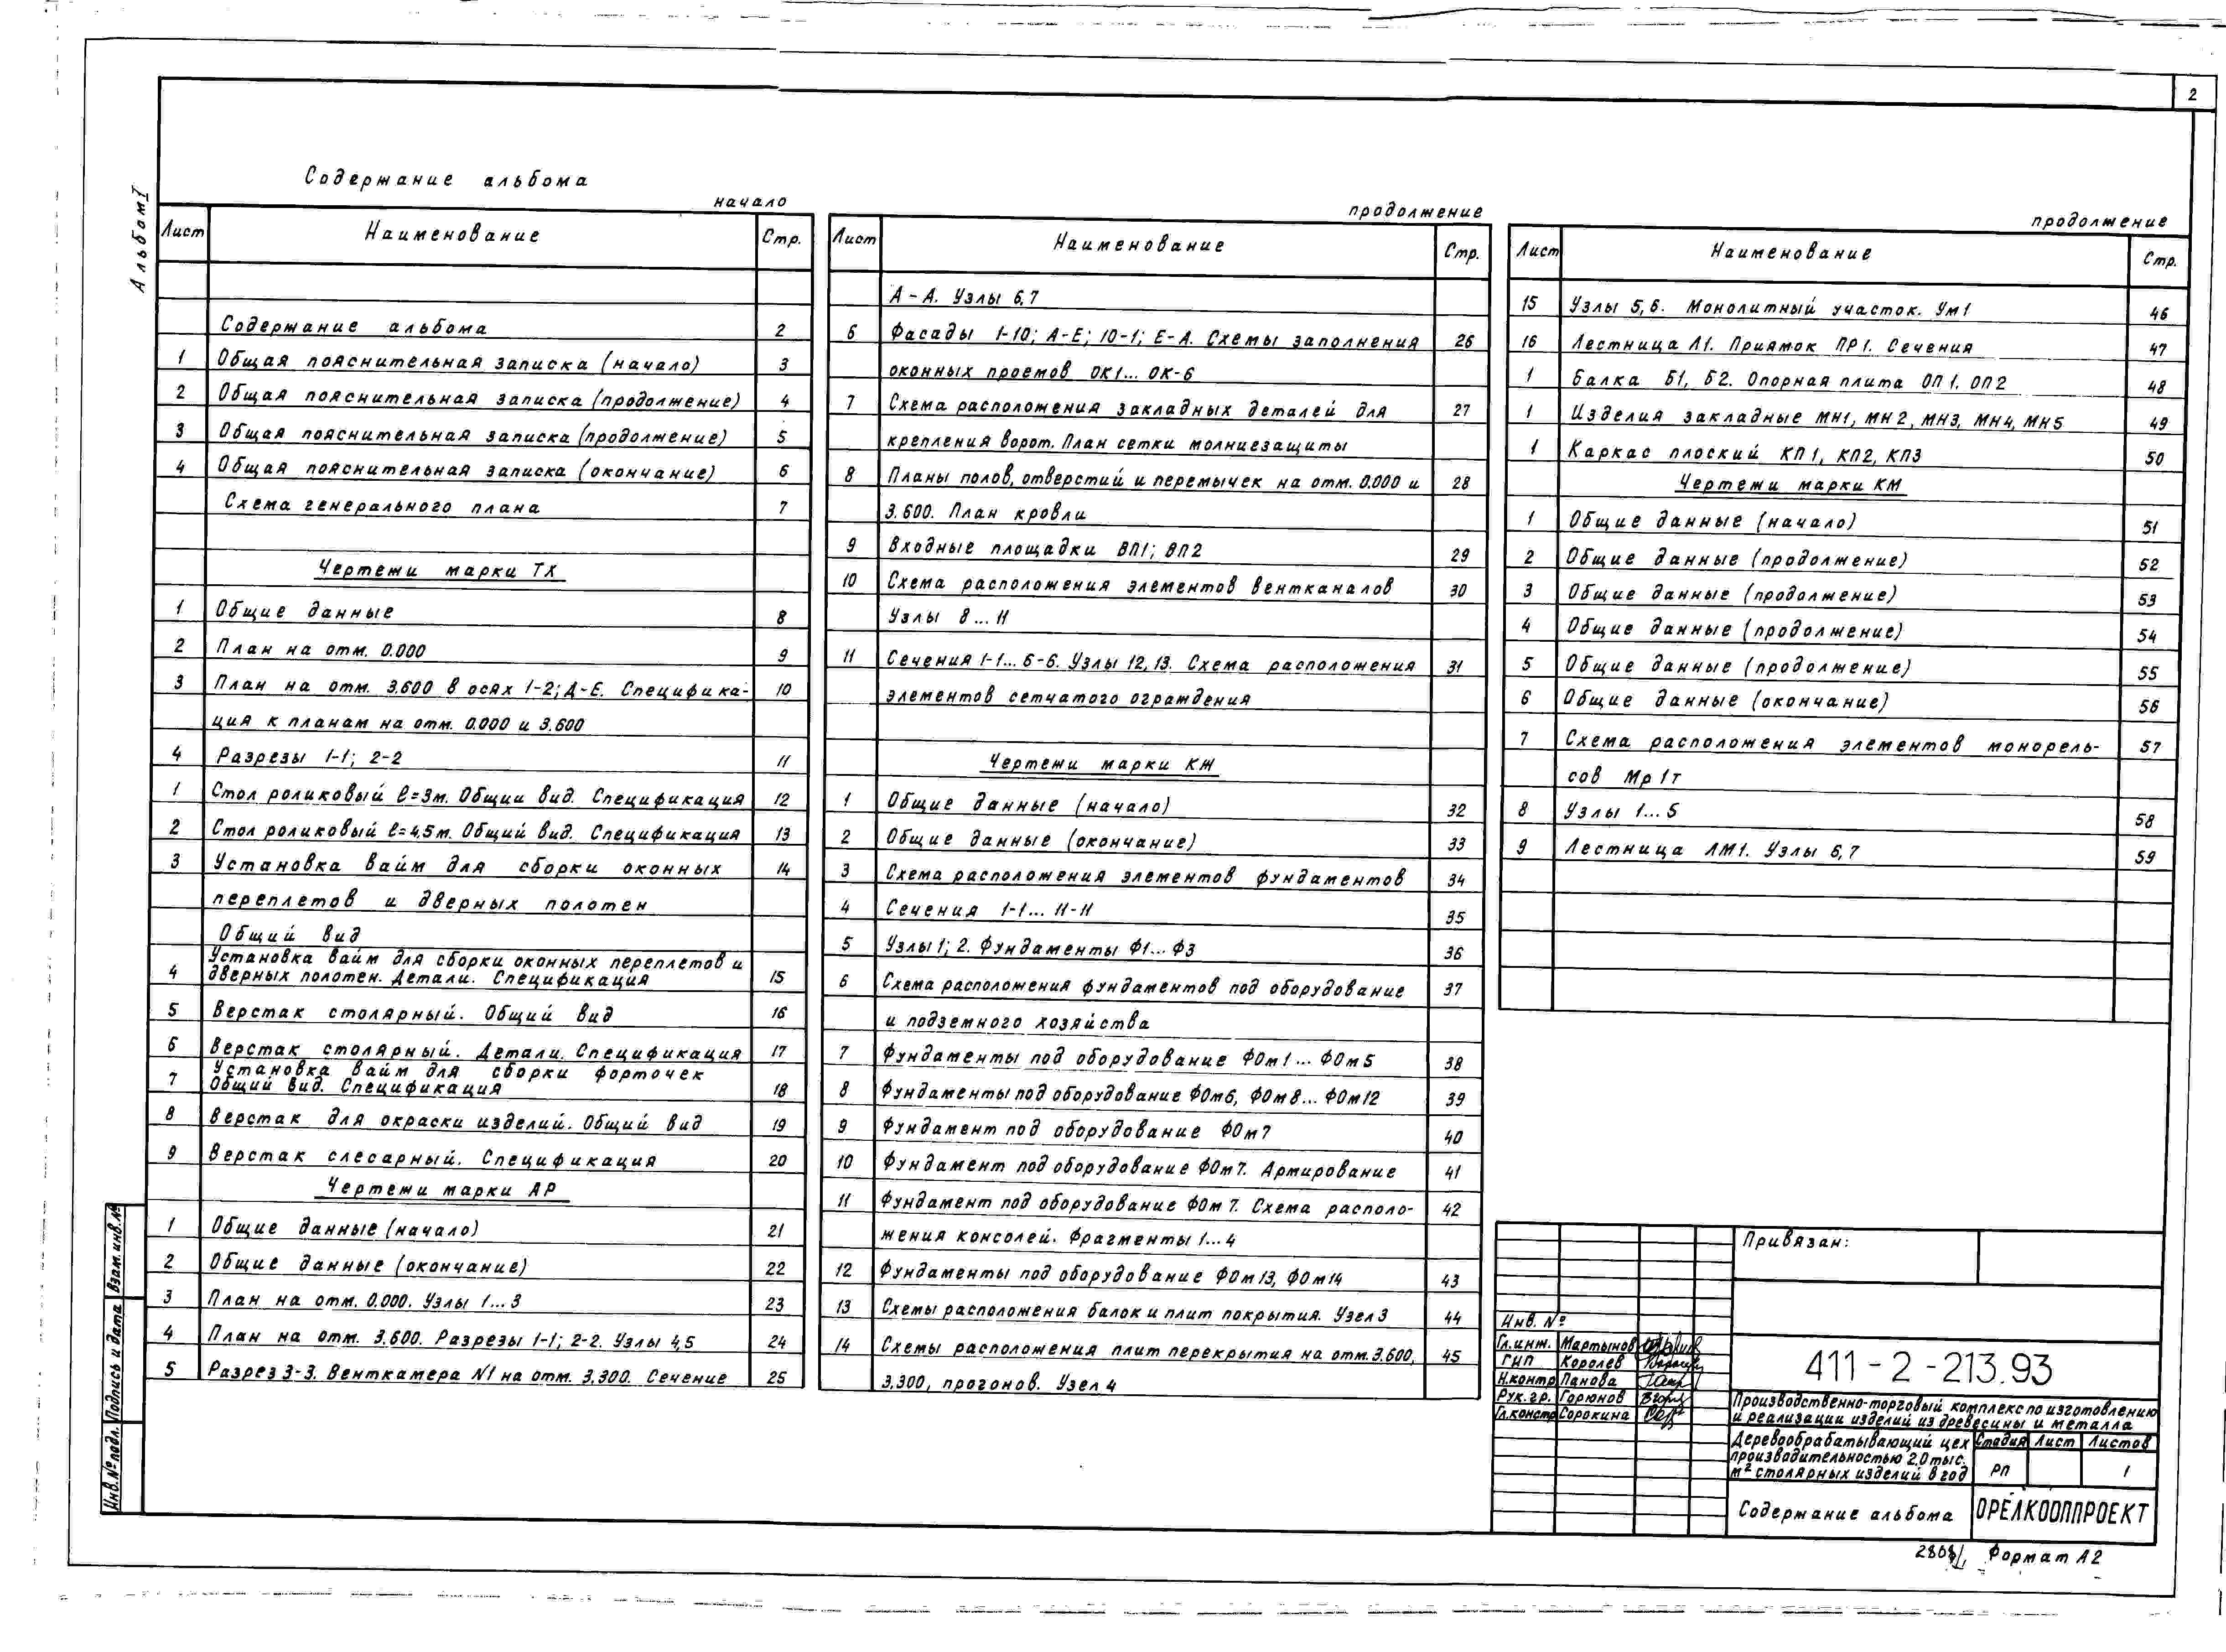 2
Альбом I
Содержание альбома
начало
Лист Наименование Стр.
Содержание альбома 2
1 Общая пояснительная записка (начало) 3
2 Общая пояснительная записка (продолжение) 4
3 Общая пояснительная записка (продолжение) 5
4 Общая пояснительная записка (окончание) 6
Схема генерального плана 7
Чертежи марки ТХ
1 Общие данные 8
2 План на отм. 0.000 9
3 План на отм. 3.600 в осях 1-2; Д-Е. Специфика- 10
ция к планам на отм. 0.000 и 3.600
4 Разрезы 1-1; 2-2 11
1 Стол роликовый ℓ=3м. Общий вид. Спецификация 12
2 Стол роликовый ℓ=4,5м. Общий вид. Спецификация 13
3 Установка вайм для сборки оконных 14
переплетов и дверных полотен
Общий вид
Установка вайм для сборки оконных переплетов и
4 дверных полотен. Детали. Спецификация 15
5 Верстак столярный. Общий вид 16
6 Верстак столярный. Детали. Спецификация 17
Установка вайм для сборки форточек
7 Общий вид. Спецификация 18
8 Верстак для окраски изделий. Общий вид 19
9 Верстак слесарный. Спецификация 20
Чертежи марки АР
1 Общие данные (начало) 21
2 Общие данные (окончание) 22
3 План на отм. 0.000. Узлы 1...3 23
4 План на отм. 3.600. Разрезы 1-1; 2-2. Узлы 4,5 24
5 Разрез 3-3. Венткамера N1 на отм. 3.300. Сечение 25
продолжение
Лист Наименование Стр.
А-А. Узлы 6,7
6 Фасады 1-10; А-Е; 10-1; Е-А. Схемы заполнения 26
оконных проемов ОК1... ОК-6
7 Схема расположения закладных деталей для 27
крепления ворот. План сетки молниезащиты
8 Планы полов, отверстий и перемычек на отм. 0.000 и 28
3.600. План кровли
9 Входные площадки ВП1; ВП2 29
10 Схема расположения элементов вентканалов 30
Узлы 8...11
11 Сечения 1-1... 6-6. Узлы 12,13. Схема расположения 31
элементов сетчатого ограждения
Чертежи марки КЖ
1 Общие данные (начало) 32
2 Общие данные (окончание) 33
3 Схема расположения элементов фундаментов 34
4 Сечения 1-1... 11-11 35
5 Узлы 1; 2. Фундаменты Ф1... Ф3 36
6 Схема расположения фундаментов под оборудование 37
и подземного хозяйства
7 Фундаменты под оборудование ФОм1... ФОм5 38
8 Фундаменты под оборудование ФОм6, ФОм8... ФОм12 39
9 Фундамент под оборудование ФОм7 40
10 Фундамент под оборудование ФОм7. Армирование 41
11 Фундамент под оборудование ФОм7. Схема располо- 42
жения консолей. Фрагменты 1...4
12 Фундаменты под оборудование ФОм13, ФОм14 43
13 Схемы расположения балок и плит покрытия. Узел 3 44
14 Схемы расположения плит перекрытия на отм. 3.600, 45
3,300, прогонов. Узел 4
продолжение
Лист Наименование Стр.
15 Узлы 5,6. Монолитный участок. Ум1 46
16 Лестница Л1. Приямок ПР1. Сечения 47
1 Балка Б1, Б2. Опорная плита ОП1, ОП2 48
1 Изделия закладные МН1, МН2, МН3, МН4, МН5 49
1 Каркас плоский КП1, КП2, КП3 50
Чертежи марки КМ
1 Общие данные (начало) 51
2 Общие данные (продолжение) 52
3 Общие данные (продолжение) 53
4 Общие данные (продолжение) 54
5 Общие данные (продолжение) 55
6 Общие данные (окончание) 56
7 Схема расположения элементов монорель- 57
сов Мр 1т
8 Узлы 1...5 58
9 Лестница ЛМ1. Узлы 6,7 59
Взам. инв. №
Подпись и дата
Инв. № подл.
Привязан:
Инв. №
Гл. инж. Мартынов
ГИП Королев
Н.контр Панова
Рук. гр. Горюнов
Гл.констр Сорокина
411-2-213.93
Производственно-торговый комплекс по изготовлению
и реализации изделий из древесины и металла
Деревообрабатывающий цех
производительностью 2,0 тыс.
м² столярных изделий в год
Стадия Лист Листов
РП 1
Содержание альбома
ОРЕЛКООППРОЕКТ
Формат А2